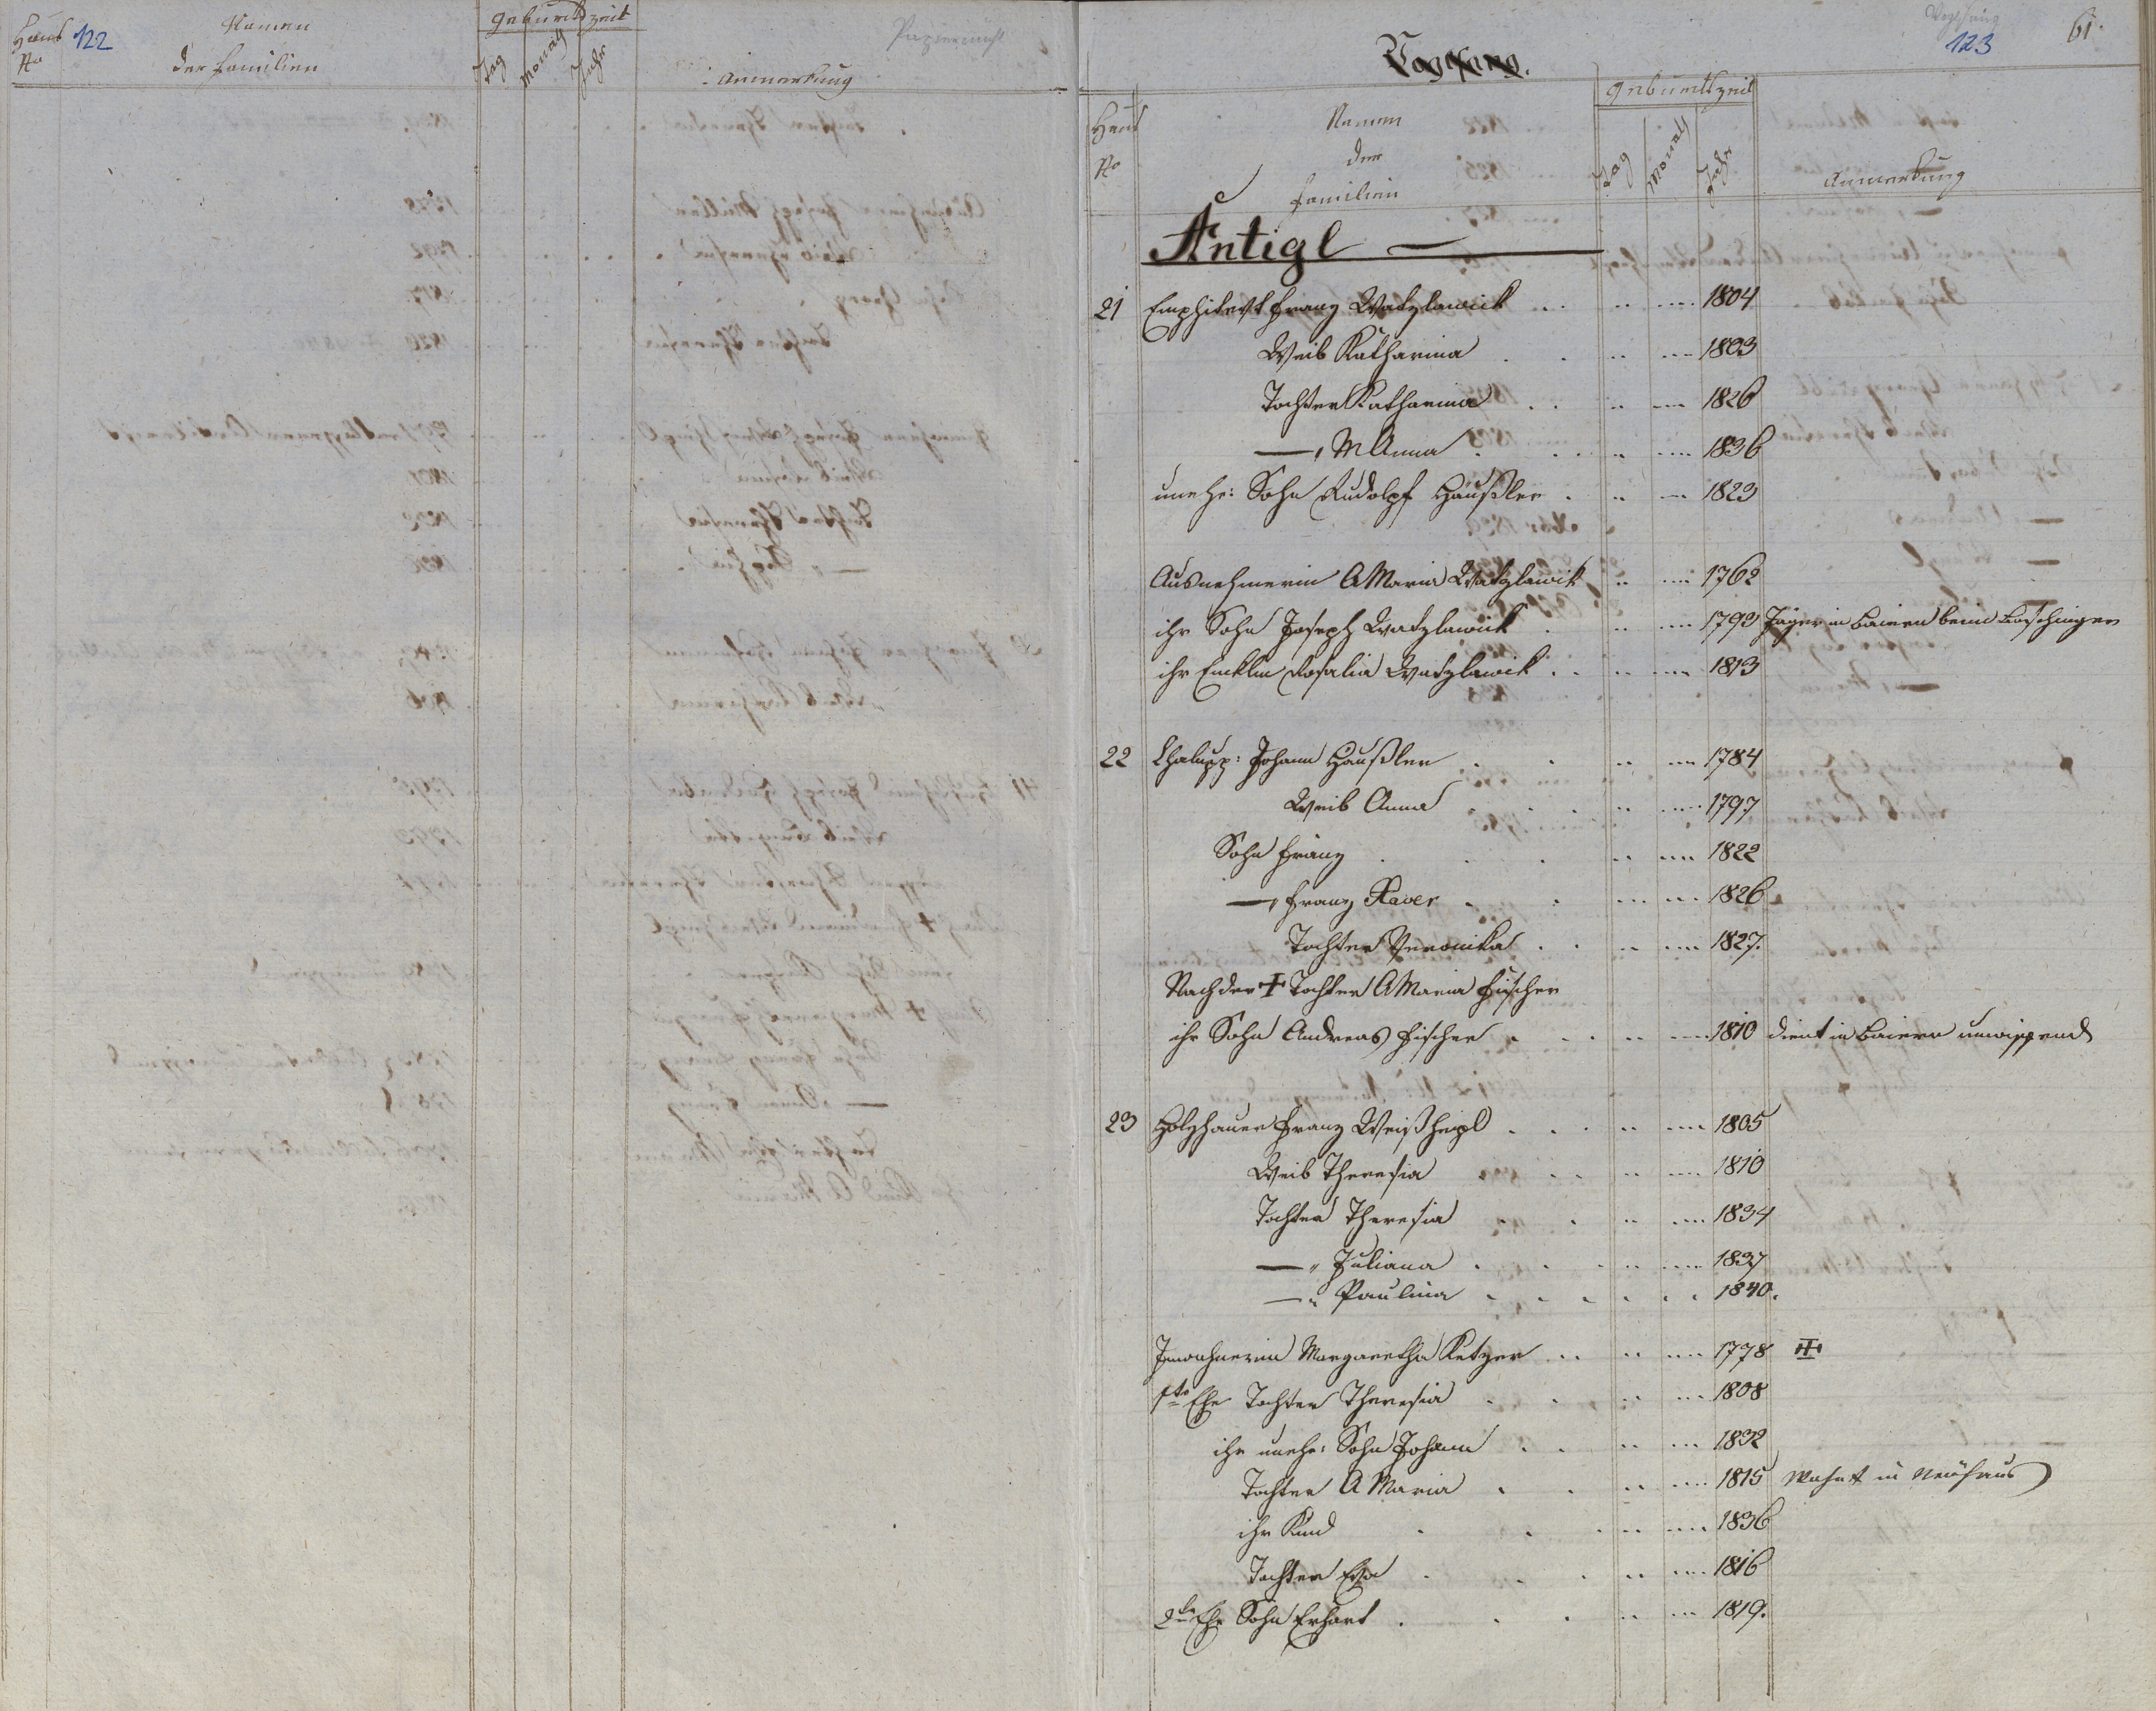 Haus
No
122
Namen
der Familien
Geburtszeit
Tag Monath Jahr
Anmerkung
Vogelsang.
123
61.
Haus
No
Namen
der
Familien
Geburtszeit
Tag Monath Jahr
Anmerkung
Antigl
21 Emphitevt Franz Watzlawick 1804
Weib Katharina 1803
Tochter Katharina 1826
—„ M Anna 1836
unehe: Sohn Rudolpf Häußler 1823
Ausnehmerin A Maria Watzlawik 1762
ihr Sohn Joseph Watzlawick 1793 Jäger in Baiern beim Poschinger
ihr Enklin Rosalia Watzlawick 1813
22 Chalupp: Johann Häußler 1784
Weib Anna 1797
Sohn Franz 1822
—„ Franz Xaver 1826
Tochter Veronika 1827.
Nach der + Tochter A Maria Fischer
ihr Sohn Andreas Fischer 1810 dient in Baiern unwissend
23 Holzhauer Franz Weisheipl 1805
Weib Theresia 1810
Tochter Theresia 1834
—„ Juliana 1837
—„ Paulina 1840.
Inwohnerin Margaretha Ketzer 1778 +
1te Ehe Tochter Theresia 1808
ihr unehe: Sohn Johann 1832
Tochter A Maria 1815 wohnt in Neuhaus
ihr Kind 1836
Tochter Eva 1816
2te Ehe Sohn Erhart 1819.